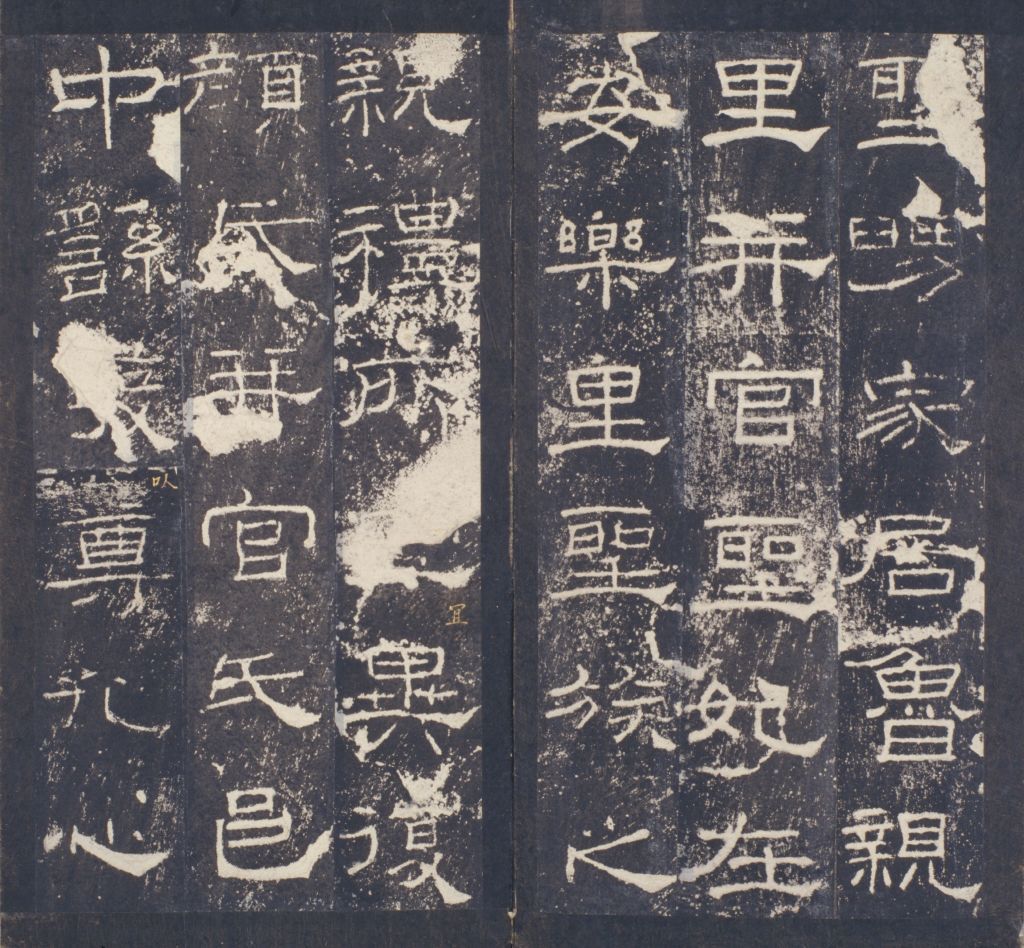 聖舅家居魯親
里并官聖妃在
安樂里聖族之
親禮所宜異復
顏氏并官氏邑
中繇發㕥尊孔心